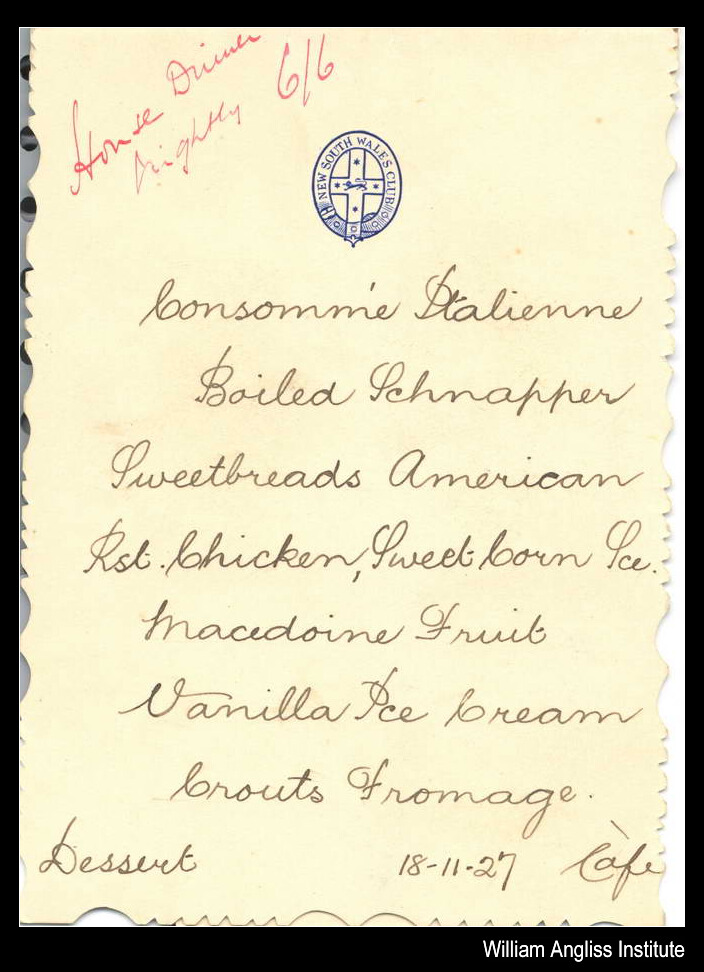 House Dinner 6/6
nightly
NEW SOUTH WALES CLUB
Consommé Italienne
Boiled Schnapper
Sweetbreads American
Rst. Chicken, Sweet Corn Sce.
Macedoine Fruit
Vanilla Ice Cream
Crouts Fromage.
Dessert 18-11-27 Càfe
William Angliss Institute